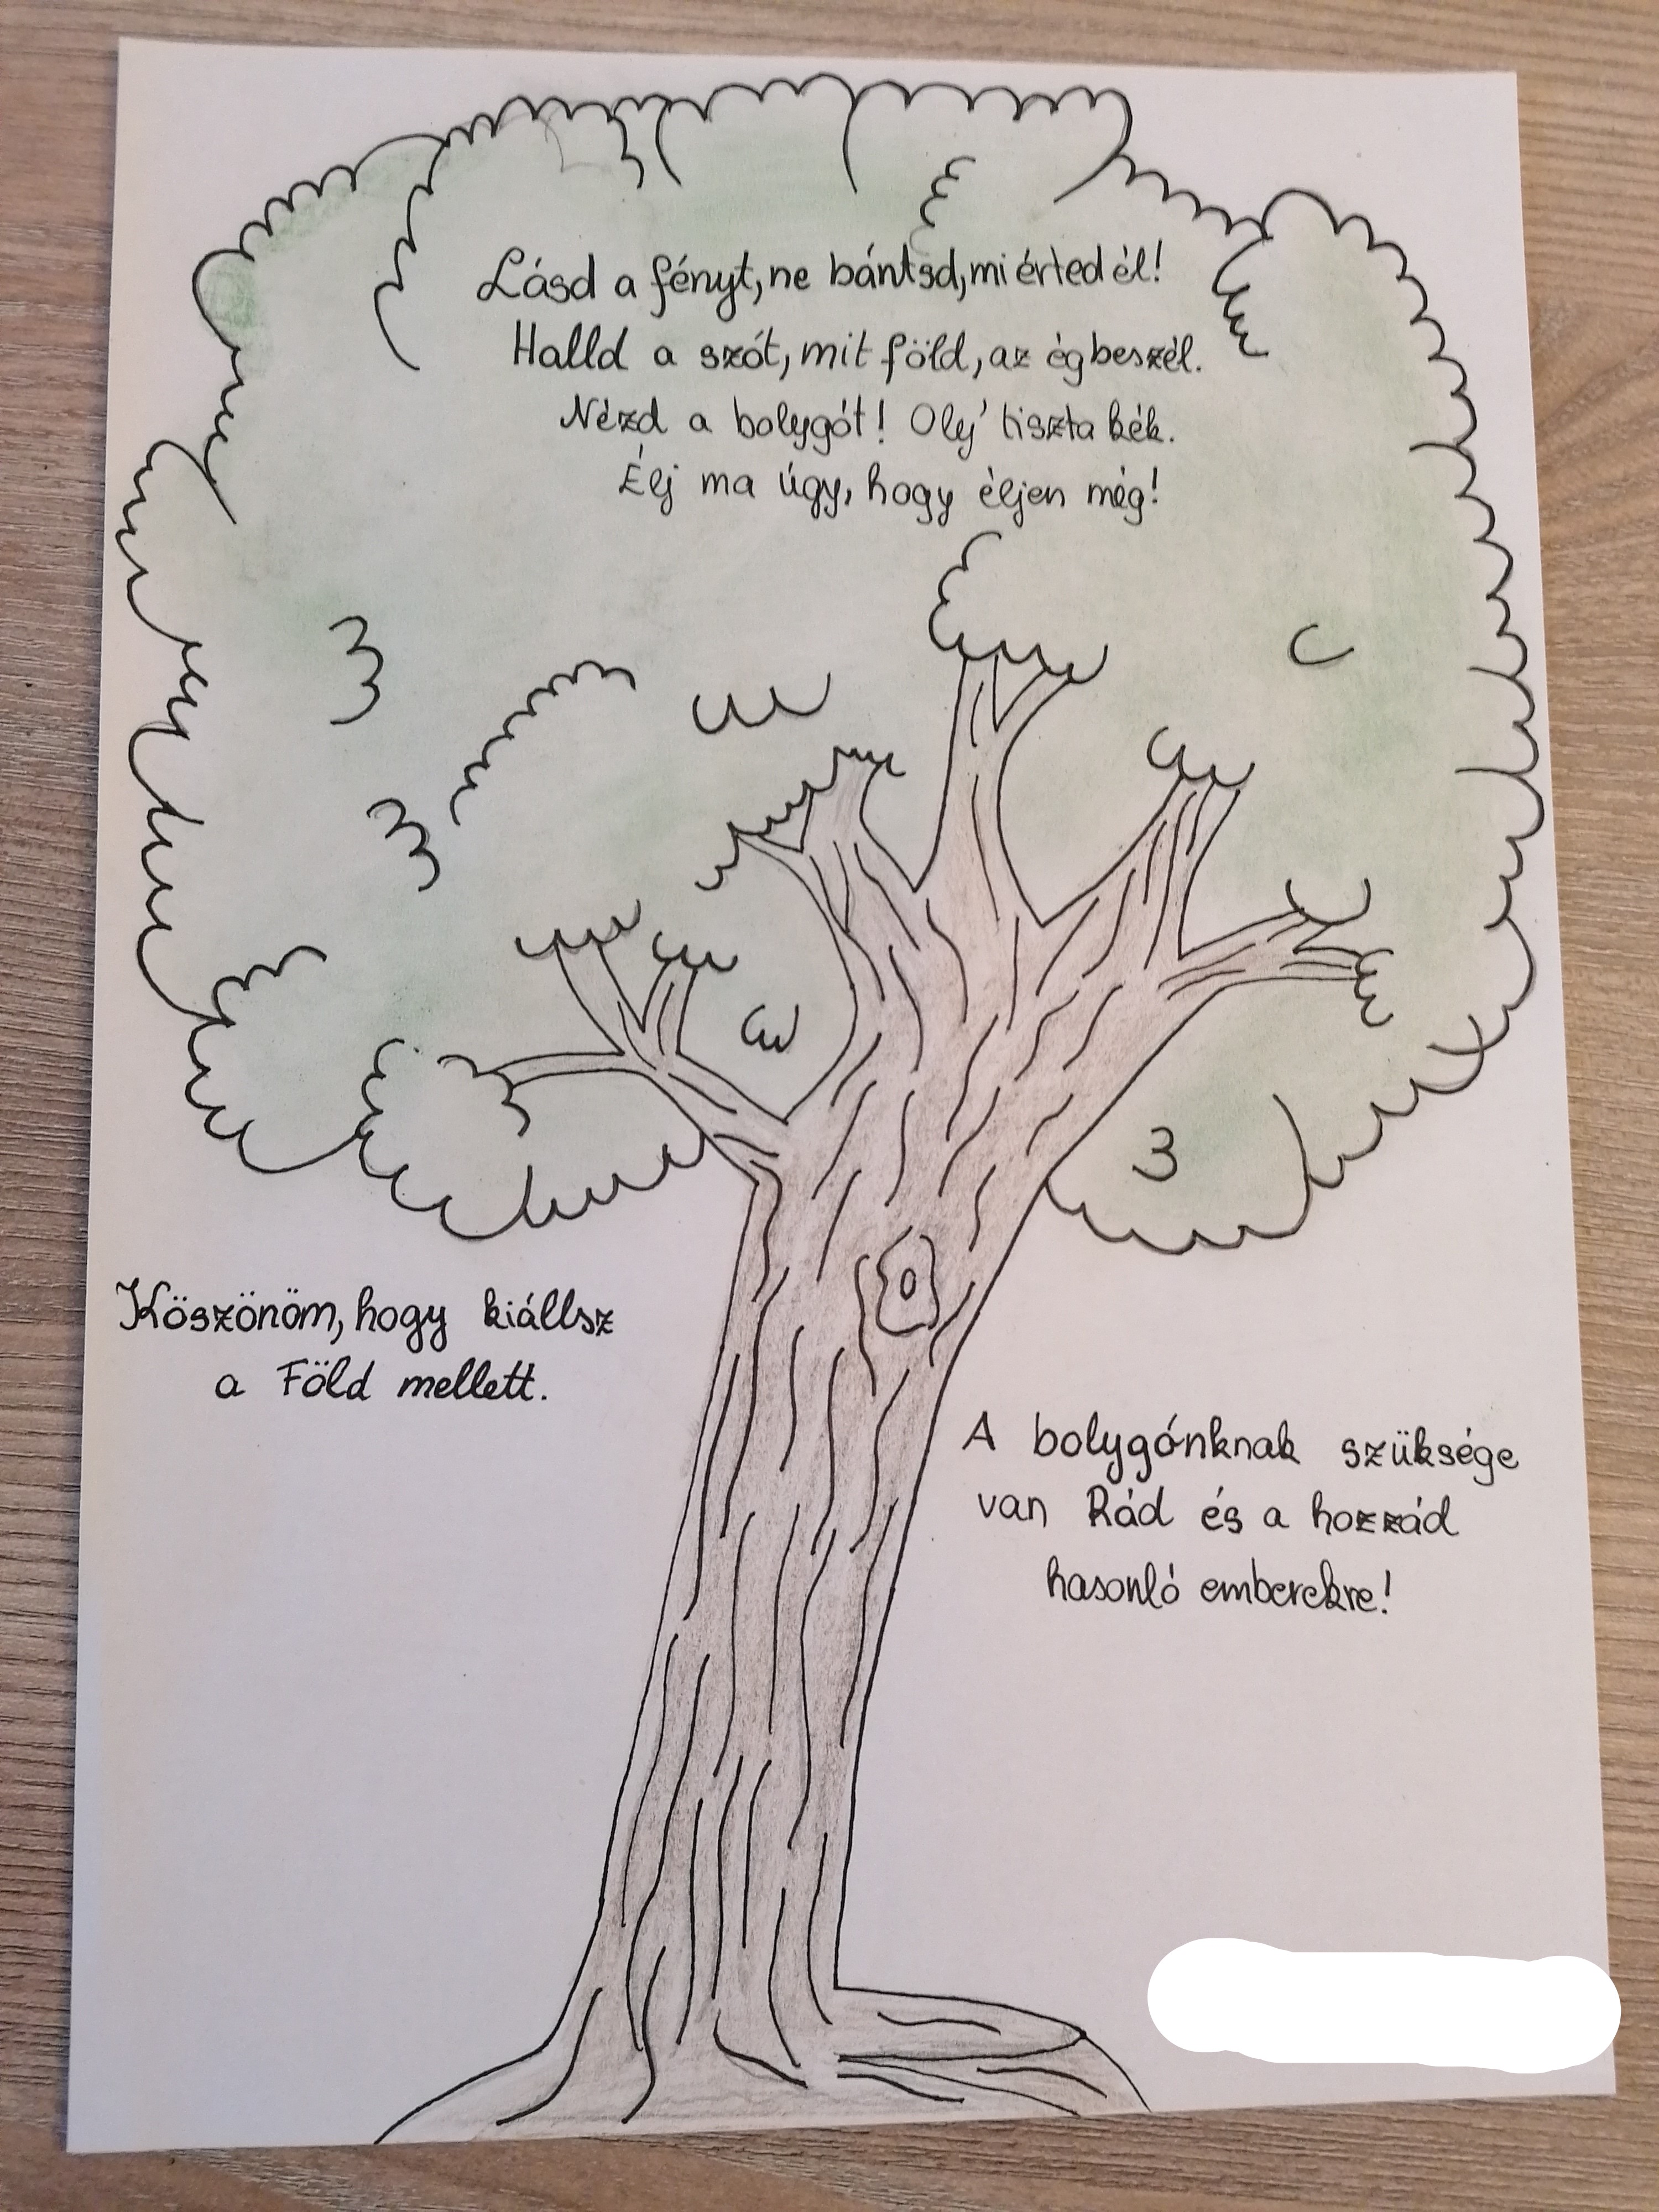 Lásd a fényt, ne bántsd, mi érted él!
Halld a szót, mit föld, az ég beszél.
Nézd a bolygót! Oly' tiszta kék.
Élj ma úgy, hogy éljen még!
Köszönöm, hogy kiállsz
a Föld mellett.
A bolygónknak szüksége
van Rád és a hozzád
hasonló emberekre!